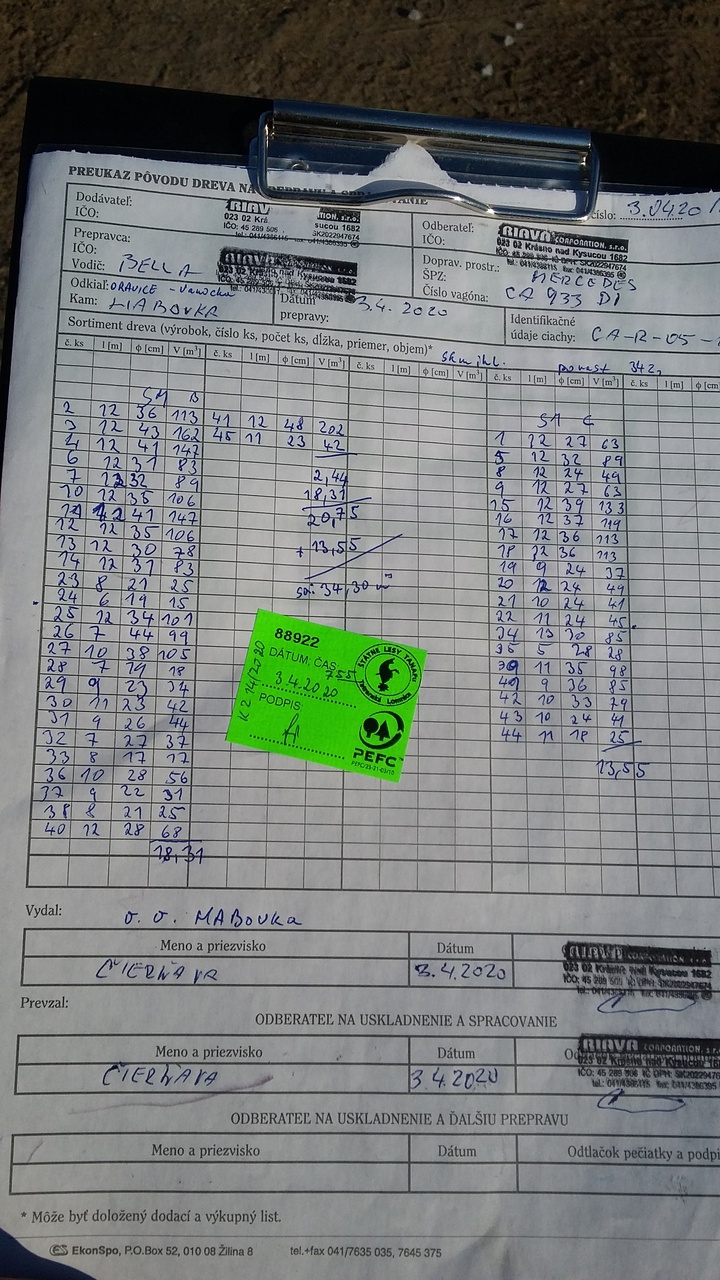 PREUKAZ PÔVODU DREVA NA
číslo: 3.04.20
Dodávateľ:
IČO:
RIAV
023 02 Krá
sucou 1682
IČO: 45 289 506
SK2022947674
Odberateľ:
IČO:
RIAVA CORPORATION, s.r.o.
023 02 Krásno nad Kysucou 1682
Prepravca:
IČO:
Vodič: BELLA
023 02 Krásno nad Kysucou 1682
Doprav. prostr.: MERCEDES
ŠPZ:
Číslo vagóna: CA 933 DI
Odkiaľ: ORAVICE -
Kam: HABOVKA
Dátum
prepravy: 3.4. 2020
Identifikačné
údaje ciachy: CA-R-05-
Sortiment dreva (výrobok, číslo ks, počet ks, dĺžka, priemer, objem)*
porast 342
č. ks l [m] ϕ [cm] V [m³] č. ks l [m] ϕ [cm] V [m³] č. ks l [m] ϕ [cm] V [m³] č. ks l [m] ϕ [cm] V [m³] č. ks l [m]
SM B
2 12 36 113
3 12 43 162
4 12 41 147
6 12 31 83
7 12 32 89
10 12 35 106
11 12 41 147
12 12 35 106
13 12 30 78
14 12 31 83
23 8 21 25
24 6 19 15
25 12 34 101
26 7 44 99
27 10 38 105
28 7 19 18
29 9 23 34
30 11 23 42
31 9 26 44
32 7 27 37
33 8 17 17
36 10 28 56
37 9 22 31
38 8 21 25
40 12 28 68
18,31
41 12 48 202
45 11 23 42
2,44
18,31
20,75
+ 13,55
34,30 m³
SM C
1 12 27 63
5 12 32 89
8 12 24 49
9 12 27 63
15 12 39 133
16 12 37 119
17 12 36 113
18 12 36 113
19 9 24 37
20 12 24 49
21 10 24 41
22 11 24 45
34 13 30 85
35 5 28 28
39 11 35 98
40 9 36 85
42 10 33 79
43 10 24 41
44 11 18 25
13,55
88922
DÁTUM, ČAS
7 55
3 4.2020
PODPIS
K2 14/2020
ŠTÁTNE LESY TANAPU
Tatranská Lomnica
PEFC
Vydal: o. o. HABOVKA
Meno a priezvisko Dátum
ČIERŇAVA 3.4.2020
RIAVA CORPORATION, s.r.o.
023 02 Krásno nad Kysucou 1682
Prevzal:
ODBERATEĽ NA USKLADNENIE A SPRACOVANIE
Meno a priezvisko Dátum
ČIERŇAVA 3 4.2020
RIAVA CORPORATION, s.r.o.
023 02 Krásno nad Kysucou 16
ODBERATEĽ NA USKLADNENIE A ĎALŠIU PREPRAVU
Meno a priezvisko Dátum Odtlačok pečiatky a podpi
* Môže byť doložený dodací a výkupný list.
EkonSpo, P.O.Box 52, 010 08 Žilina 8 tel.+fax 041/7635 035, 7645 375